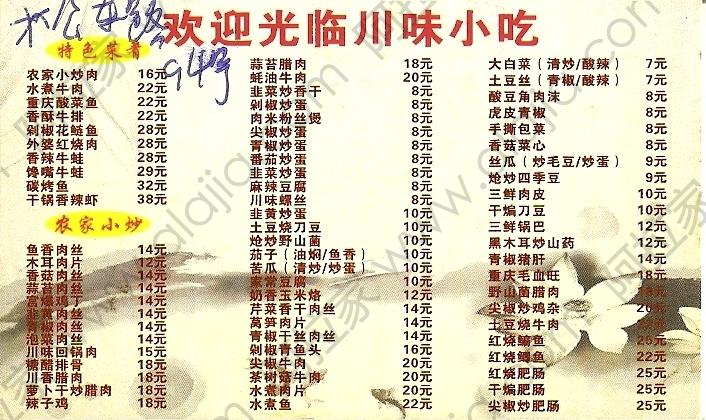 欢迎光临川味小吃
特色菜肴
农家小炒肉 16元
水煮牛肉 22元
重庆酸菜鱼 22元
香酥牛排 22元
剁椒花鲢鱼 28元
外婆红烧肉 28元
香辣牛蛙 28元
馋嘴牛蛙 29元
碳烤鱼 32元
干锅香辣虾 38元
农家小炒
鱼香肉丝 14元
木耳肉片 12元
香菇肉丝 14元
蒜苔肉丝 14元
宫爆鸡丁 14元
韭黄肉丝 14元
青椒肉丝 14元
泡菜肉丝 14元
川味回锅肉 15元
糖醋排骨 18元
川香腊肉 18元
萝卜干炒腊肉 18元
辣子鸡 18元
蒜苔腊肉 18元
蚝油牛肉 20元
韭菜炒香干 8元
剁椒炒蛋 8元
肉米粉丝煲 8元
尖椒炒蛋 8元
青椒炒蛋 8元
番茄炒蛋 8元
韭菜炒蛋 8元
麻辣豆腐 8元
川味螺丝 8元
韭黄炒蛋 10元
土豆烧刀豆 10元
炝炒野山菌 10元
茄子（油焖/鱼香） 10元
苦瓜（清炒/炒蛋） 10元
家常豆腐 10元
奶香玉米烙 12元
芹菜香干肉丝 14元
莴笋肉片 14元
青椒干丝肉丝 14元
剁椒青鱼头 16元
尖椒牛肉 20元
茶树菇牛肉 20元
水煮肉片 20元
水煮鱼 22元
大白菜（清炒/酸辣） 7元
土豆丝（青椒/酸辣） 7元
酸豆角肉沫 8元
虎皮青椒 8元
手撕包菜 8元
香菇菜心 8元
丝瓜（炒毛豆/炒蛋） 9元
炝炒四季豆 9元
三鲜肉皮 10元
干煸刀豆 10元
三鲜锅巴 12元
黑木耳炒山药 12元
青椒猪肝 14元
重庆毛血旺 18元
野山菌腊肉 18元
尖椒炒鸡杂 20元
土豆烧牛肉
红烧鳊鱼 25元
红烧鲫鱼 22元
红烧肥肠 25元
干煸肥肠 25元
尖椒炒肥肠 25元